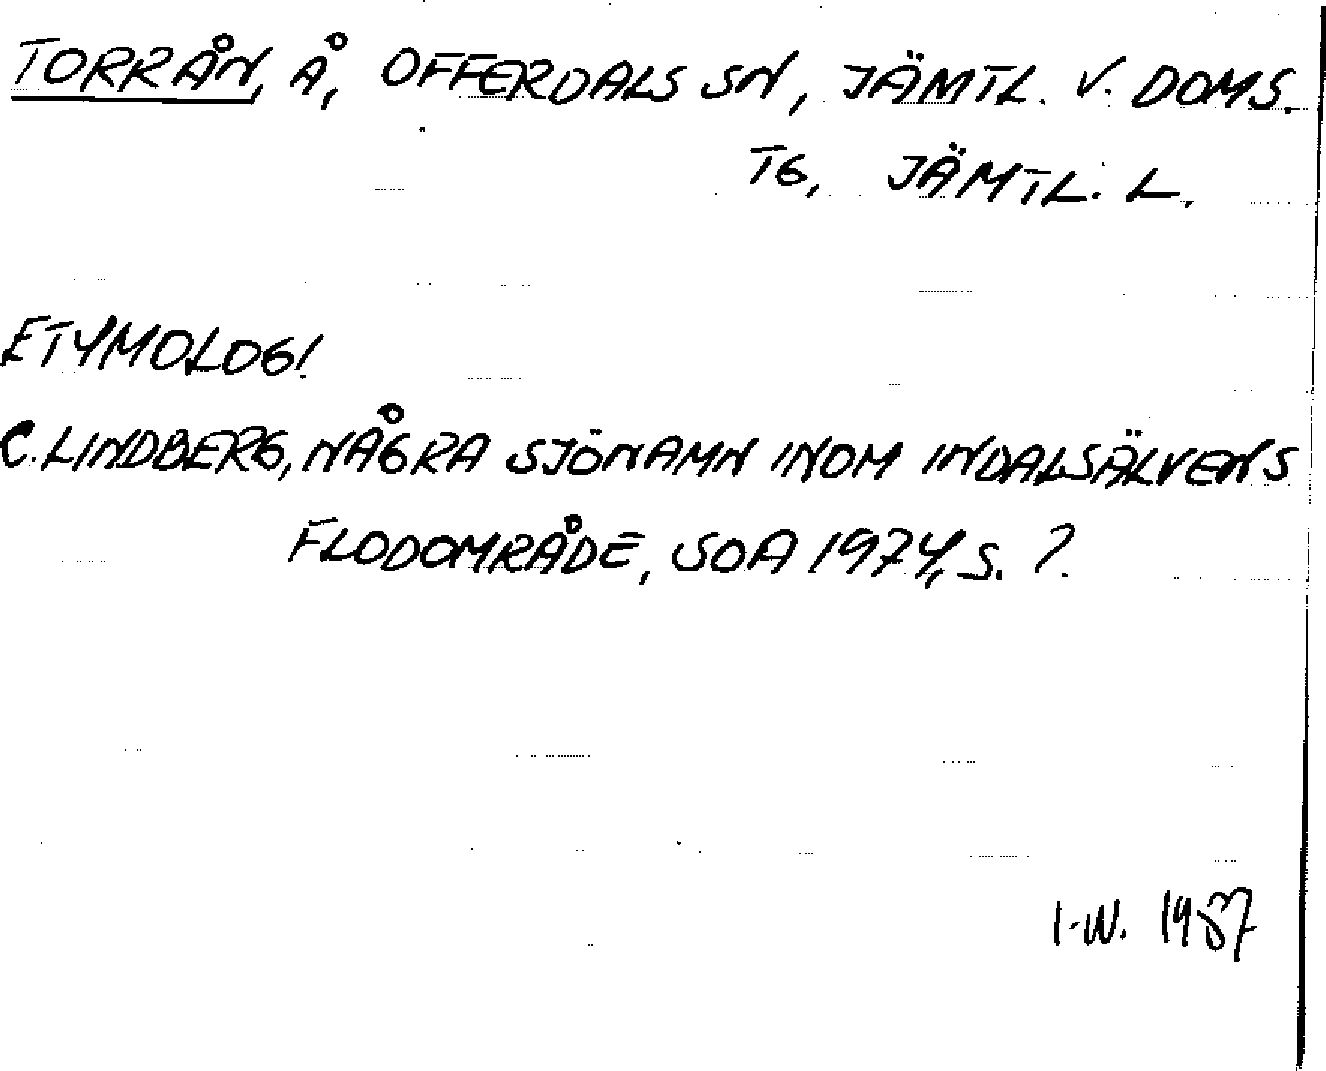 TORRÅN, Å, OFFERDALS SN, JÄMTL. V. DOMS.
TG, JÄMTL. L.
ETYMOLOGI
C. LINDBERG, NÅGRA SJÖNAMN INOM INDALSÄLVENS
FLODOMRÅDE, SOA 1974, S. ?
I-W. 1987